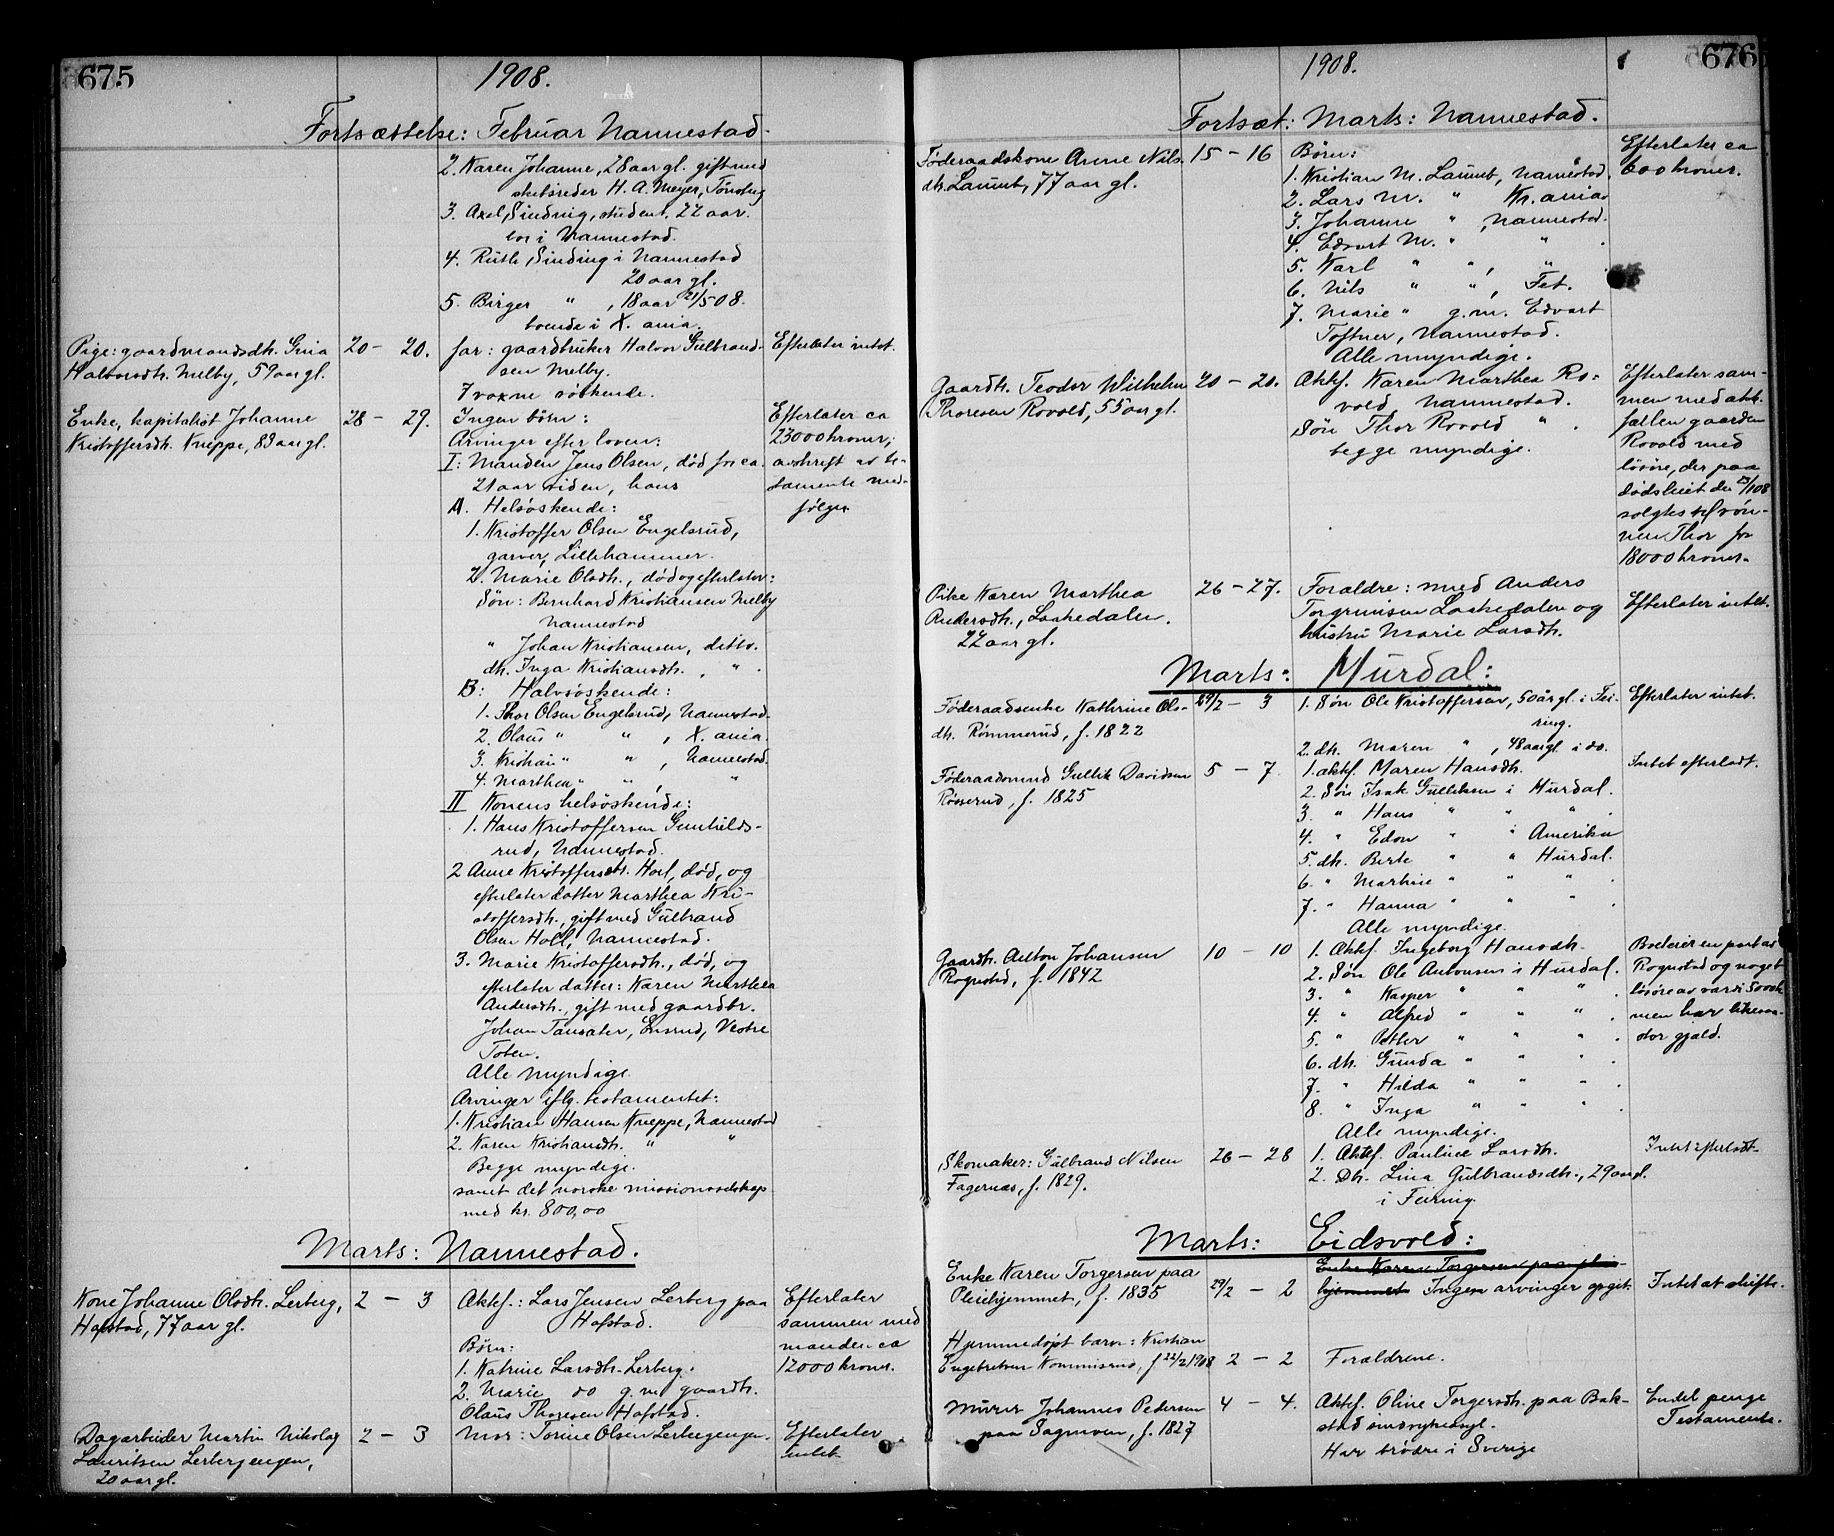 675
1908.
Fortsættelse: Februar Nannestad.
2. Karen Johanne, 28 aar gl. gift med
skibsreder H. A. Meyer, Tønsberg
3. Axel Sinding, student, 22 aar.
bor i Nannestad.
4. Ruth Sinding i Nannestad
20 aar gl.
5. Birger " , 18 aar 21/5 08.
boende i X.ania.
Pige: gaardmandsdh. Gina
Halvorsdh. Melby, 59 aar gl.
20 — 20.
far: gaardbruker Halvor Gulbrand-
sen Melby.
7 voxne søskende.
Efterlater intet.
Enke, kapitalist Johanne
Kristoffersdh. Kneppe, 83 aar gl.
28 — 29.
Ingen børn:
Arvinger efter loven:
I: Manden Jens Olsen, død for ca.
21 aar siden, hans
A. Helsøskende:
1. Kristoffer Olsen Engelsrud,
garver, Lillehammer.
2. Marie Olsdh., død og efterlater:
Søn: Bernhard Kristiansen Melby
Nannestad
" Johan Kristiansen, ditto.
dh. Inga Kristiansdh. , " .
B: Halvsøskende:
1. Thor Olsen Engelsrud, Nannestad.
2. Olaus " " , X.ania.
3. Kristian " " , Nannestad.
4. Marthea " " , "
II Konens helsøskende:
1. Hans Kristoffersen Gunhilds-
rud, Nannestad.
2 Anne Kristoffersdh. Holl, død, og
efterlater datter Marthea Kri-
stoffersdh., gift med Gulbrand
Olsen Holl, Nannestad.
3. Marie Kristoffersdh., død, og
efterlater datter: Karen Marthea
Andersdh., gift med gaardbr.
Johan Tansæter, Ensrud, Vestre
Toten.
Alle myndige.
Arvinger iflg. testamentet:
1. Kristian Hansen Kneppe, Nannestad
2. Karen Kristiansdh. " "
Begge myndige.
samt det norske missionsselskap
med kr. 800,00
Efterlater ca
23000 kroner;
avskrift av te-
stamente med-
følger.
Marts: Nannestad.
Kone Johanne Olsdh. Lerberg,
Hofstad, 77 aar gl.
2 — 3
Aktef.: Lars Jensen Lerberg paa
Hofstad.
Børn:
1. Katrine Larsdh. Lerberg.
2. Marie do g.m. gaardb.
Olaus Thoresen Hofstad.
Efterlater
sammen med
manden ca
12000 kroner.
Dagarbeider Martin Nikolay
Lauritsen Lerbergengen,
20 aar gl.
2 — 3
Mor: Torine Olsen Lerbergengen.
Efterlater
intet.
676
1908.
Fortsæt: Marts: Nannestad.
Føderaadskone Anne Nils-
dh. Laumb, 77 aar gl.
15 — 16
Børn:
1. Kristian M. Laumb, Nannestad.
2. Lars M. " Kr.ania
3. Johanne " , Nannestad.
4. Edvart M. " " .
5. Karl " " , " .
6. Nils " " , Fet.
7. Marie " g.m. Edvart
Toftner, Nannestad.
Alle myndige.
Efterlater ca
600 kroner.
Gaardb. Teodor Wilhelm
Thoresen Rovold, 55 aar gl.
20 — 20.
Aktef. Karen Marthea Ro-
vold Nannestad.
Søn Thor Rovold " .
begge myndige.
Efterlater sam-
men med akte-
fællen gaarden
Rovold med
løsøre, der paa
dødsleiet den 23/1 08
solgtes til søn-
nen Thor for
18000 kroner.
Pike Karen Marthea
Andersdh., Laakedalen.
22 aar gl.
26 — 27.
Forældre: med Anders
Torgrimsen Laakedalen og
hustru Marie Larsdh.
Efterlater intet.
Marts: Hurdal:
Føderaadsenke Kathrine Ols-
dh. Rømmerud, f. 1822
29/2 — 3
1. Søn Ole Kristoffersen, 50 år gl. i Fei-
ring.
2. dh. Maren " , 48 aar gl. i do.
Efterlater intet.
Føderaadsmand Gullik Davidsen
Røsserud, f. 1825
5 — 7.
1. aktef. Maren Hansdh.
2. Søn Isak Gulliksen i Hurdal.
3. " Hans " " " .
4. " Edon " " Amerika
5. dh. Berte " " Hurdal.
6. " Martine " " " .
7. " Hanna " " " .
Alle myndige.
Intet efterladt.
Gaardb. Anton Johansen
Rognstad, f. 1842
10 — 10
1. Aktef. Ingeborg Hansdh.
2. Søn Ole Antonsen i Hurdal.
3. " Kasper " " " .
4. " Alfred " " " .
5. " Petter " " " .
6. dh. Gunda " " " .
7. " Hilda " " " .
8. " Inga " " " .
Alle myndige.
Boet eier en part av
Rognstad og noget
løsøre av værdi 5000 k
men har likesaa
stor gjæld.
Skomaker: Gulbrand Nilsen
Fagernæs, f. 1829.
26 — 28
1. Aktef. Pauline Larsdh.
2. Dh. Lina Gulbrandsdh., 29 aar gl.
i Feiring.
Intet efterladt.
Marts: Eidsvold:
Enke Karen Torgersen paa
Pleiehjemmet, f. 1835
29/2 — 2
Enke Karen Torgersen paa plei-
hjemmet Ingen arvinger opgit.
Intet at skifte.
Hjemmedøpt barn: Kristian
Engebretsen Kommisrud, f 22/2 1908
2 — 2
Forældrene.
Murer Johannes Pedersen
paa Dagmoen, f. 1827
4 — 4.
Aktef. Oline Torgersdh. paa Bak-
stad sindssykeasyl.
Har brødre i Sverige
Endel penge
Testamente.